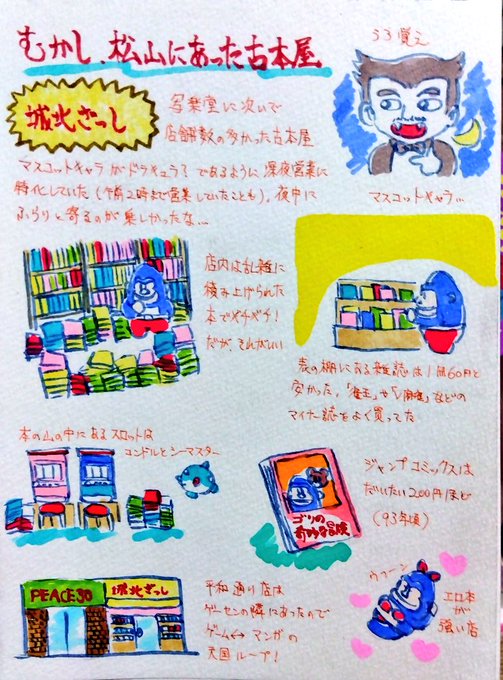 むかし、松山にあった古本屋
城北ざっし
写楽堂に次いで
店舗数の多かった古本屋
うろ覚え
マスコットキャラ…
マスコットキャラがドラキュラ?であるように深夜営業に
特化していた(午前2時まで営業していたことも)。夜中に
ふらりと寄るのが楽しかったな…
店内は乱雑に
積み上げられた
本でパチパチ!
だが、それがいい
表の棚にある雑誌は1冊60円と
安かった。
マイナー誌をよく買ってた
本の山の中にあるスロットは
コンドルとシーマスター
ジャンプコミックスは
だいたい200円ほど
(93年頃)
ゴリの
奇妙な冒険
PEACE30
城北ざっし
平和通り店は
ゲーセンの隣にあったので
ゲーム↔マンガの
天国ループ!
ウフーン
エロ本
が
強い店